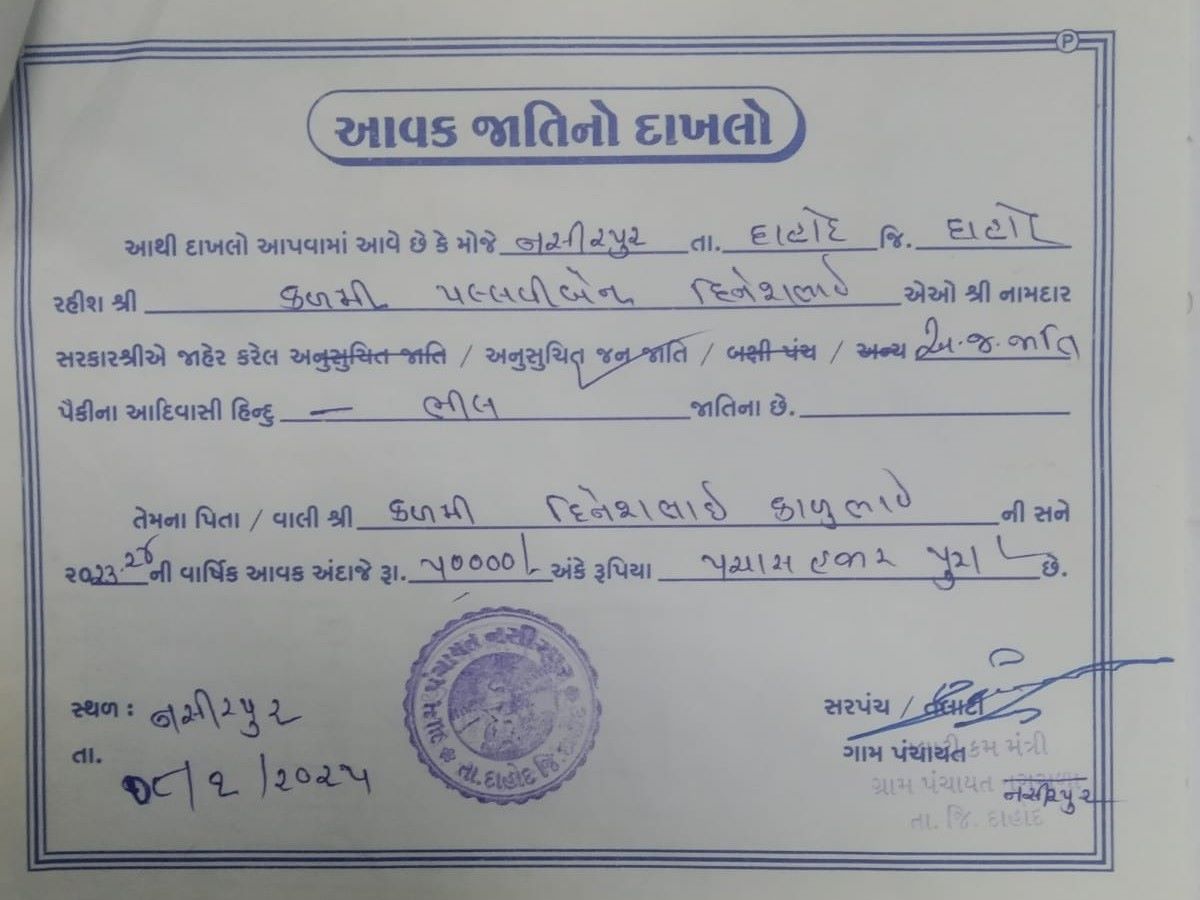 P
આવક જાતિનો દાખલો
આથી દાખલો આપવામાં આવે છે કે મોજે નસીરપુર તા. દાહોદ જિ. દાહોદ
રહીશ શ્રી કળમી પલ્લવીબેન દિનેશભાઈ એઓ શ્રી નામદાર
સરકારશ્રીએ જાહેર કરેલ અનુસુચિત જાતિ / અનુસુચિત જન જાતિ / બક્ષી પંચ / અન્ય અ.જ.જાતિ
પૈકીના આદિવાસી હિન્દુ — ભીલ જાતિના છે.
તેમના પિતા / વાલી શ્રી કળમી દિનેશભાઈ કાળુભાઈ ની સને
૨૦23-24 ની વાર્ષિક આવક અંદાજે રૂા. ૫૦૦૦૦/- અંકે રૂપિયા પચાસ હજાર પુરા છે.
ગ્રામ પંચાયત નસીરપુર
તા. દાહોદ જિ. દાહોદ
સ્થળ : નસીરપુર
સરપંચ / તલાટી
તા.
ગામ પંચાયત
કમ મંત્રી
૦૮/૧/૨૦૨૫
ગ્રામ પંચાયત નસીરપુર
તા. જિ. દાહોદ